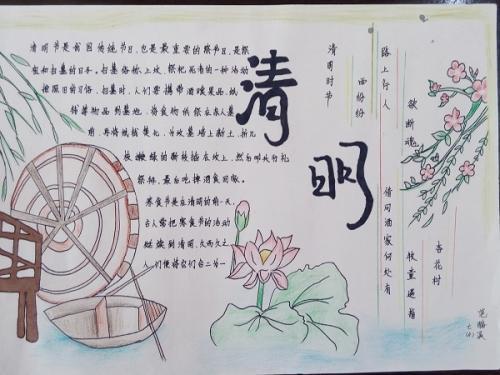 清明节是我国传统节日，也是最重要的祭节日，是祭
祖和扫墓的日子。扫墓俗称上坟，祭祀死者的一种活动
按照旧的习俗，扫墓时，人们要携带酒食果品、纸
钱等物品到墓地，将食物供祭在亲人墓
前，再将纸钱焚化，为坟墓培上新土，折几
枝嫩绿的新枝插在坟上，然后叩头行礼
祭拜，最后吃掉酒食回家。
寒食节是在清明的前一天，
古人常把寒食节的活动
延续到清明，久而久之
人们便将它们合二为一
清明
清明时节
雨纷纷
路上行人
欲断魂
借问酒家何处有
牧童遥指
杏花村